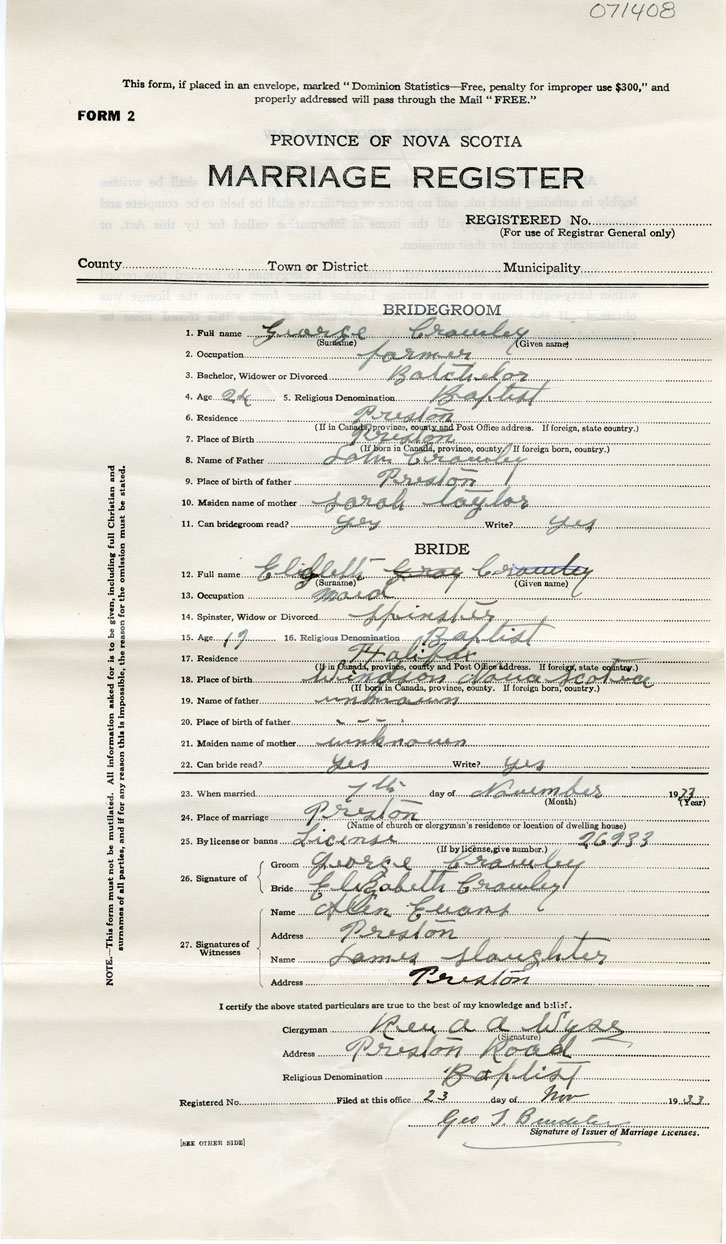 071408
This form, if placed in an envelope, marked "Dominion Statistics—Free, penalty for improper use $300," and
properly addressed will pass through the Mail "FREE."
FORM 2
PROVINCE OF NOVA SCOTIA
MARRIAGE REGISTER
REGISTERED No.
(For use of Registrar General only)
County Town or District Municipality
BRIDEGROOM
1. Full name George Crawley
(Surname) (Given name)
2. Occupation farmer
3. Bachelor, Widower or Divorced Batchelor
4. Age 24 5. Religious Denomination Baptist
6. Residence Preston
(If in Canada, province, county and Post Office address. If foreign, state country.)
7. Place of Birth Preston
(If born in Canada, province, county. If foreign born, country.)
8. Name of Father Crawley
9. Place of birth of father Preston
10. Maiden name of mother Sarah Taylor
11. Can bridegroom read? yes Write? yes
BRIDE
12. Full name Crawley
(Surname) (Given name)
13. Occupation maid
14. Spinster, Widow or Divorced Spinster
15. Age 19 16. Religious Denomination Baptist
17. Residence Halifax
(If in Canada, province, county and Post Office address. If foreign, state country.)
18. Place of birth Windson Nova Scotia
(If born in Canada, province, county. If foreign born, country.)
19. Name of father unknown
20. Place of birth of father - - -
21. Maiden name of mother unknown
22. Can bride read? Yes Write? Yes
23. When married 7th day of November 1933
(Month) (Year)
24. Place of marriage Preston
(Name of church or clergyman's residence or location of dwelling house)
25. By license or banns License 26933
(If by license, give number.)
26. Signature of Groom George Crawley
Bride Elizabeth Crawley
27. Signatures of Witnesses
Name Allen Evans
Address Preston
Name James Slaughter
Address Preston
I certify the above stated particulars are true to the best of my knowledge and belief.
Clergyman Rev a a Wyse
(Signature)
Address Preston Road
Religious Denomination Baptist
Registered No. Filed at this office 23 day of Nov 1933
Geo T.
Signature of Issuer of Marriage Licenses.
[SEE OTHER SIDE]
NOTE.—This form must not be mutilated. All information asked for is to be given, including full Christian and
surnames of all parties, and if for any reason this is impossible, the reason for the omission must be stated.